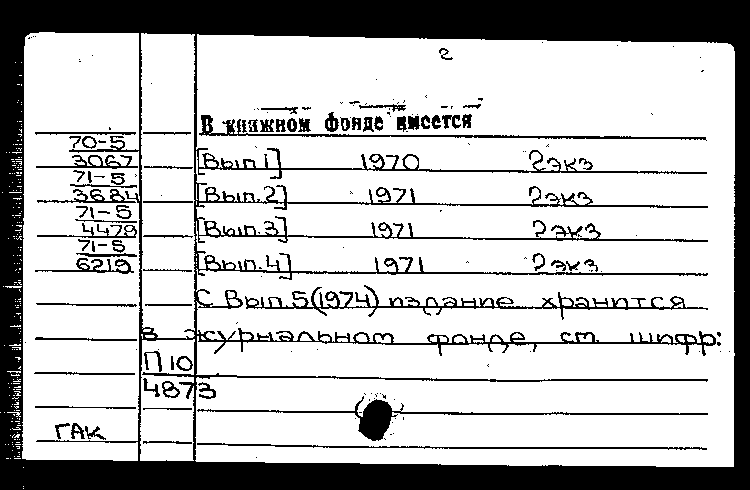 2
В книжном фонде имеется
70-5
3067 [Вып 1] 1970 2 экз
71-5
3684 [Вып. 2] 1971 2 экз
71-5
4479 [Вып. 3] 1971 2 экз
71-5
6219 [Вып. 4] 1971 2 экз
С Вып. 5 (1974) издание хранится
в журнальном фонде, ст. шифр:
П 10
4873
ГАК